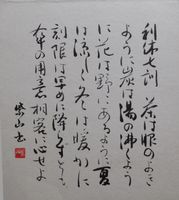 利休七訓 茶は服のよき
ように炭は湯の沸くよう
に花は野にあるように夏
は涼しく冬は暖かに
刻限は早めに降らずとも
傘の用意相客に心せよ